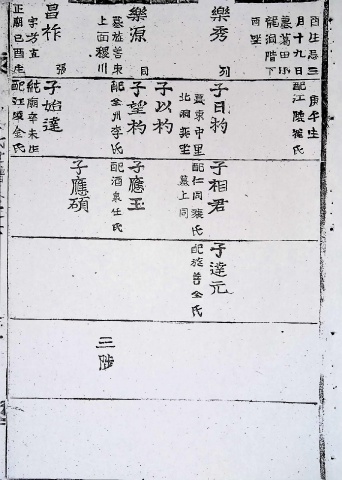 酉生忌三
月十九日
墓葛田洞
龍洞階下
酉坐
樂秀
列
樂源
同
墓旌善東
上面稷川
昌祚
張
字芳直
正廟己酉生
庚午生
配江陵崔氏
子日杓
墓東中里
北洞巽坐
子以杓
子望杓
配全州李氏
子始達
純廟辛未生
配江陵金氏
子相君
配仁同張氏
墓上同
子應玉
配酒泉任氏
子應碩
子達元
配旌善全氏
三陟